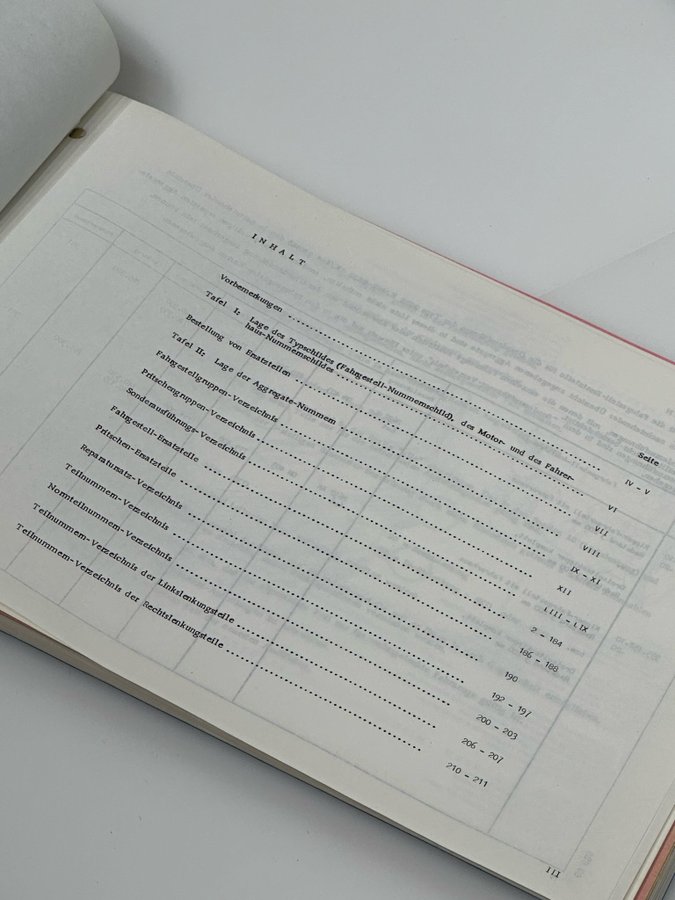 INHALT
Seite
Vorbemerkungen ........ IV - V
Tafel I: Lage des Typschildes (Fahrgestell-Nummernschild), des Motor- und des Fahrer-
haus-Nummernschildes ........ VI
Bestellung von Ersatzteilen ........ VII
Tafel II: Lage der Aggregate-Nummern ........ VIII
Fahrgestellgruppen-Verzeichnis ........ IX - XI
Pritschengruppen-Verzeichnis ........ XII
Sonderausführungs-Verzeichnis ........ LIII - LIX
Fahrgestell-Ersatzteile ........ 2 - 184
Pritschen-Ersatzteile ........ 186 - 188
Reparatursatz-Verzeichnis ........ 190
Teilnummern-Verzeichnis ........ 192 - 197
Normteilnummern-Verzeichnis ........ 200 - 203
Teilnummern-Verzeichnis der Linkslenkungsteile ........ 206 - 207
Teilnummern-Verzeichnis der Rechtslenkungsteile ........ 210 - 211
III